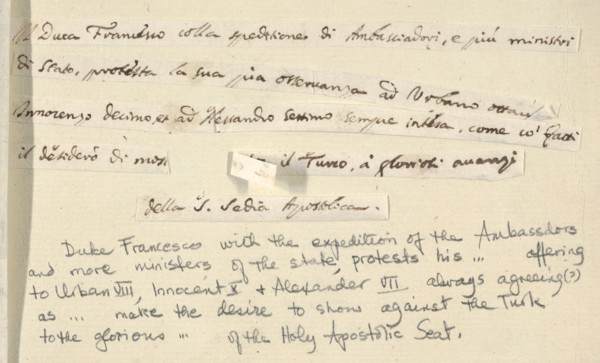 Il Duca Francesco colla spedizione di Ambasciadori, e più ministri
di Stato, protesta la sua pia osservanza ad Urbano ottavo
Innocenzo decimo, et ad Alessandro settimo sempre intesa, come co' fatti
il desiderò di mos il Turco, à gloriosi avanzi
della S. Sedia Apostolica.
Duke Francesco with the expedition of the Ambassdors
and more ministers of the state, protests his ... offering
to Urban VIII, Innocent X + Alexander VII always agreeing(?)
as ... make the desire to show against the Turk
to the glorious ... of the Holy Apostolic Seat.